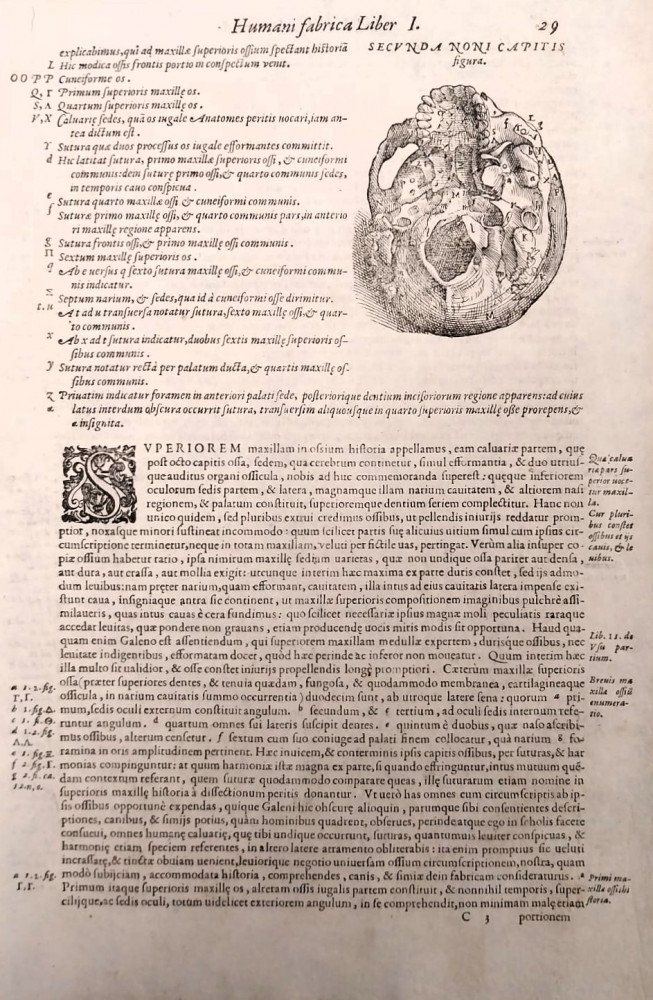 Humani fabrica Liber I. 29
explicabimus, qui ad maxillæ superioris ossium spectant historiā
L Hic modica ossis frontis portio in conspectum venit.
O O P P Cuneiforme os.
Q, Γ Primum superioris maxillę os.
S, Λ Quartum superioris maxillę os.
V, X Caluariæ sedes, quā os iugale Anatomes peritis uocari, iam antea dictum est.
Y Sutura quæ duos processus os iugale efformantes committit.
d Hic latitat sutura, primo maxillæ superioris ossi, & cuneiformi
communis: dein suturę primo ossi, & quarto communis sedes,
in temporis cauo conspicua.
e Sutura quarto maxillæ ossi & cuneiformi communis.
f Suturæ primo maxillę ossi, & quarto communis pars, in anterio
ri maxillę regione apparens.
g Sutura frontis ossi, & primo maxillę ossi communis.
Π Sextum maxillę superioris os.
q Ab e uersus q sexto sutura maxillę ossi, & cuneiformi commu-
nis indicatur.
Σ Septum narium, & sedes, qua id à cuneiformi osse dirimitur.
t. u A t ad u transuersa notatur sutura, sexto maxillę ossi, & quar-
to communis.
x Ab x ad t sutura indicatur, duobus sextis maxillę superioris os-
sibus communis.
y Sutura notatur rectà per palatum ducta, & quartis maxillę os-
sibus communis.
z Priuatim indicatur foramen in anteriori palati sede, posterioríque dentium incisoriorum regione apparens: ad cuius
a latus interdum obscura occurrit sutura, transuersim aliquousque in quarto superioris maxillę osse prorepens, &
a insignita.
SECVNDA NONI CAPITIS
figura.
SVPERIOREM maxillam in ossium historia appellamus, eam caluariæ partem, quę
post octo capitis ossa, sedem, qua cerebrum continetur, simul efformantia, & duo utrius-
que auditus organi officula, nobis ad huc commemoranda superest: quęque inferiorem
oculorum sedis partem, & latera, magnamque illam narium cauitatem, & altiorem nasi
regionem, & palatum constituit, superioremque dentium seriem complectitur. Hanc non
unico quidem, sed pluribus extrui credimus ossibus, ut pellendis iniurijs reddatur prom-
ptior, noxasque minori sustineat incommodo: quum scilicet partis suę alicuius uitium simul cum ipsius cir-
cumscriptione terminetur, neque in totam maxillam, veluti per fictile uas, pertingat. Verùm alia insuper co-
piæ ossium habetur ratio, ipsa nimirum maxillę sedium uarietas, quæ non undique ossa pariter aut densa,
aut dura, aut crassa, aut mollia exigit: utcunque interim hæc maxima ex parte duris constet, sed ijs admo-
dum leuibus: nam pręter narium, quam efformant, cauitatem, illa intus ad eius cauitatis latera impense exi-
stunt caua, insigniaque antra sic continent, ut maxillæ superioris compositionem imaginibus pulchrè assi-
milaueris, quas intus cauas è cera fundimus: quo scilicet necessariæ ipsius magnæ moli peculiaris raraque
accedat leuitas, quæ pondere non grauans, etiam producendę uocis miris modis sit opportuna. Haud qua-
quam enim Galeno est assentiendum, qui superiorem maxillam medullæ expertem, durisque ossibus, nec
leuitate indigentibus, efformatam docet, quòd hæc perinde ac inferior non moueatur. Quum interim hæc
illa multo sit ualidior, & osse constet iniurijs propellendis longè promptiori. Cæterùm maxillæ superioris
ossa (præter superiores dentes, & tenuia quædam, fungosa, & quodammodo membranea, cartilagineaque
officula, in narium cauitatis summo occurrentia) duodecim sunt, ab utroque latere sena: quorum a pri-
mum, sedis oculi externum constituit angulum. b secundum, & c tertium, ad oculi sedis internum refe-
runtur angulum. d quartum omnes sui lateris suscipit dentes. e quintum è duobus, quæ naso ascribi-
mus ossibus, alterum censetur. f sextum cum suo coniuge ad palati finem collocatur, quà narium g fo-
ramina in oris amplitudinem pertinent. Hæc inuicem, & conterminis ipsis capitis ossibus, per suturas, & har
monias compinguntur: at quum harmoniæ istæ magna ex parte, si quando effringuntur, intus mutuum quē-
dam contextum referant, quem suturæ quodammodo comparate queas, illę suturarum etiam nomine in
superioris maxillę historia à dissectionum peritis donantur. Vt uerò has omnes cum circumscriptis ab ip-
sis ossibus opportunè expendas, quique Galeni hic obscurę alioquin, parumque sibi consentientes descri-
ptiones, canibus, & simijs potius, quàm hominibus quadrent, obserues, perinde atque ego in scholis facere
consueui, omnes humanę caluarię, quę tibi undique occurrunt, suturas, quantumuis leuiter conspicuas, &
harmonię etiam speciem referentes, in altero latere atramento obliterabis: ita enim promptius sic ueluti
incrassatę, & tinctæ obuiam uenient, leuiorique negotio uniuersam ossium circumscriptionem, nostra, quam
modò subijciam, accommodata historia, comprehendes, canis, & simiæ dein fabricam consideraturus. a
Primum itaque superioris maxillę os, alteram ossis iugalis partem constituit, & nonnihil temporis, super-
cilijque, ac sedis oculi, totum uidelicet exteriorem angulum, in se comprehendit, non minimam malę etiam
C 3 portionem
Quæ caluariæ pars superior uocetur maxilla.
Cur pluribus constet ossibus et ijs cauis, & leuibus.
Lib. 11. de Vsu partium.
Breuis maxillæ ossiū enumeratio.
Primi maxillæ ossis historia.
a 1. 2. fig. Γ, Γ.
b 1. fig. Δ.
c 1. fi. Θ.
d 1. 2. fig. Λ. Λ.
e 1. fig. Ξ.
f 2. fig. Γ.
a 1. 2. fig. Γ, Γ.